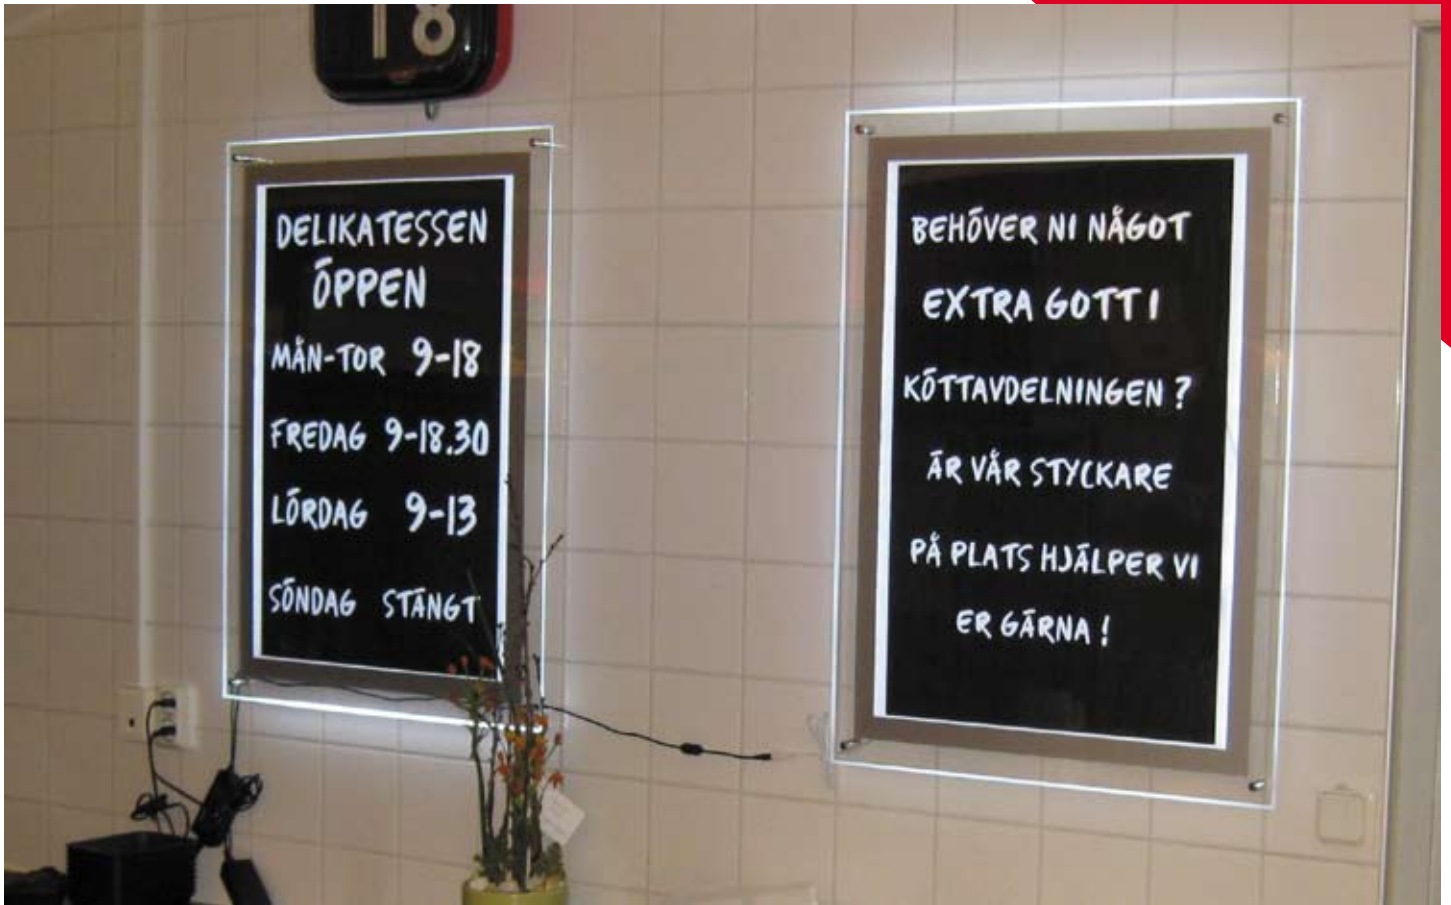 18
DELIKATESSEN
ÖPPEN
MÅN-TOR 9-18
FREDAG 9-18.30
LÖRDAG 9-13
SÖNDAG STÄNGT
BEHÖVER NI NÅGOT
EXTRA GOTT I
KÖTTAVDELNINGEN ?
ÄR VÅR STYCKARE
PÅ PLATS HJÄLPER VI
ER GÄRNA !